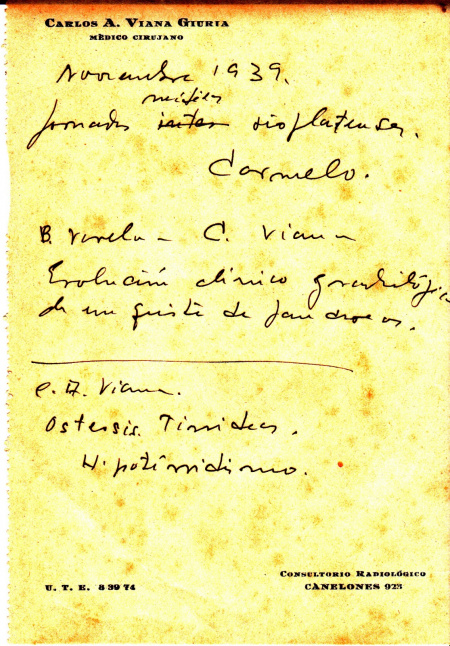 CARLOS A. VIANA GIURIA
MÉDICO CIRUJANO
Noviembre 1939.
médicas
Jornadas rioplatenses.
Carmelo.
B. Varela - C. Viana
Evolución clínico
de un quiste de
C. A. Viana.
Ostensis. Tiroidea.
Hipotiroidismo.
U. T. E. 8 39 74
CONSULTORIO RADIOLÓGICO
CANELONES 928